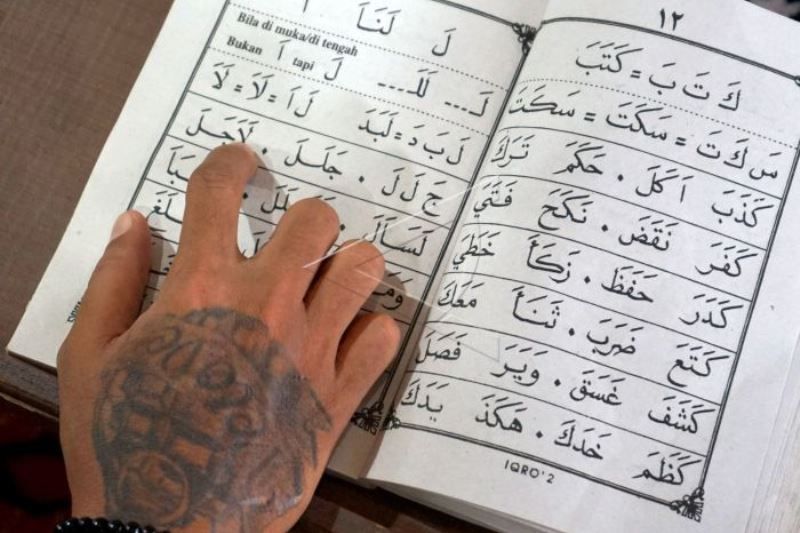 ١٢
كَ تَ بَ = كَتَبَ
سَ كَ تَ = سَكَتَ = سَكَتَ
كَذَبَ اَكَلَ . حَكَمَ تَرَكَ
كَفَرَ نَقَضَ . نَكَحَ فَتَيَ
كَدَرَ حَفَظَ . زَكَأَ خَطَيَ
كَتَعَ ضَرَبَ . ثَنَأَ مَعَكَ
كَشَفَ غَسَقَ . وَيَرَ فَصَلَ
كَظَمَ خَدَكَ . هَكَذَ يَدَكَ
IQRO' 2
لَ لَنَا
Bila di muka/di tengah
Bukan اَ tapi لَ
لَ .... لَلَـ....
لَ بَ دَ = لَبَدَ لَ اَ = لَا = لَا
جَ لَ لَ . جَلَلَ . لَاجَلَ
لَسَأَلَ